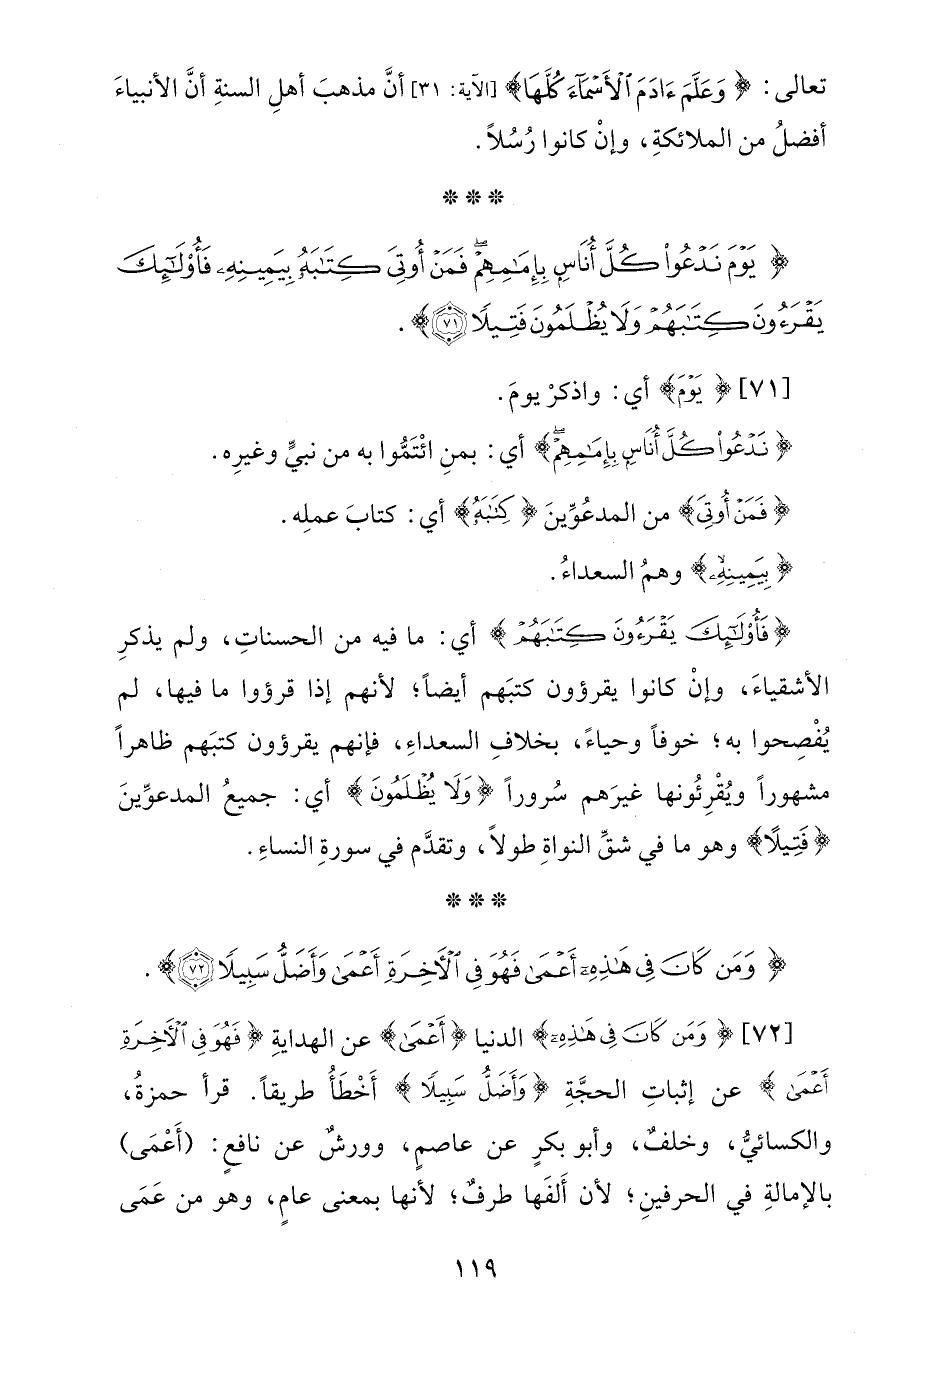 تعالى: ﴿ وَعَلَّمَ ءَادَمَ ٱلْأَسْمَآءَ كُلَّهَا﴾ [الآية: ٣١] أنَّ مذهبَ أهلِ السنةِ أنَّ الأنبياءَ
أفضلُ من الملائكةِ، وإنْ كانوا رُسُلاً.
* * *
﴿ يَوْمَ نَدْعُواْ كُلَّ أُنَاسٍۭ بِإِمَٰمِهِمْۖ فَمَنْ أُوتِىَ كِتَٰبَهُۥ بِيَمِينِهِۦ فَأُوْلَٰٓئِكَ
يَقْرَءُونَ كِتَٰبَهُمْ وَلَا يُظْلَمُونَ فَتِيلًا ٧١﴾.
[٧١] ﴿ يَوْمَ﴾ أي: واذكرْ يومَ.
﴿ نَدْعُواْ كُلَّ أُنَاسٍۭ بِإِمَٰمِهِمْۖ﴾ أي: بمنِ ائْتَمُّوا به من نبيٍّ وغيرِه.
﴿ فَمَنْ أُوتِىَ﴾ من المدعُوِّينَ ﴿ كِتَٰبَهُۥ﴾ أي: كتابَ عملِه.
﴿ بِيَمِينِهِۦ﴾ وهمُ السعداءُ.
﴿ فَأُوْلَٰٓئِكَ يَقْرَءُونَ كِتَٰبَهُمْ ﴾ أي: ما فيه من الحسناتِ، ولم يذكرِ
الأشقياءَ، وإنْ كانوا يقرؤون كتبَهم أيضاً؛ لأنهم إذا قرؤوا ما فيها، لم
يُفْصِحوا به؛ خوفاً وحياءً، بخلافِ السعداءِ، فإنهم يقرؤون كتبَهم ظاهراً
مشهوراً ويُقْرِئُونها غيرَهم سُروراً ﴿ وَلَا يُظْلَمُونَ ﴾ أي: جميعُ المدعوِّينَ
﴿ فَتِيلًا﴾ وهو ما في شقِّ النواةِ طولاً، وتقدَّم في سورةِ النساءِ.
* * *
﴿ وَمَن كَانَ فِى هَٰذِهِۦٓ أَعْمَىٰ فَهُوَ فِى ٱلْأَخِرَةِ أَعْمَىٰ وَأَضَلُّ سَبِيلًا ٧٢﴾.
[٧٢] ﴿ وَمَن كَانَ فِى هَٰذِهِۦٓ﴾ الدنيا ﴿ أَعْمَىٰ﴾ عن الهدايةِ ﴿ فَهُوَ فِى ٱلْأَخِرَةِ
أَعْمَىٰ ﴾ عن إثباتِ الحجَّةِ ﴿ وَأَضَلُّ سَبِيلًا ﴾ أَخْطَأُ طريقاً. قرأ حمزةُ،
والكسائيُّ، وخلفٌ، وأبو بكرٍ عن عاصمٍ، وورشٌ عن نافعٍ: (أَعْمَى)
بالإمالةِ في الحرفينِ؛ لأن ألفَها طرفٌ؛ لأنها بمعنى عامٍ، وهو من عَمَى
١١٩